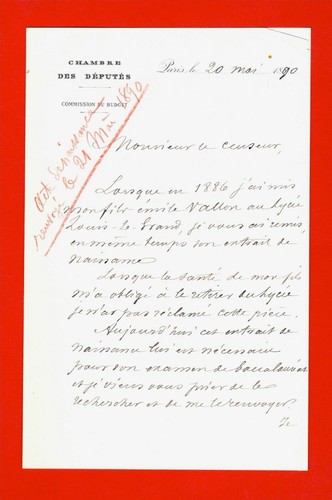 CHAMBRE
DES DÉPUTÉS
COMMISSION DU BUDGET
Paris, le 20 mai 1890
acte de naissance
renvoyé le 21 Mai 1890
Monsieur le censeur,
Lorsque en 1886 j'ai mis
mon fils émile Vallon au lycée
Louis-le-Grand, je vous ai remis
en même temps son extrait de
naissance.
Lorsque la santé de mon fils
m'a obligé à le retirer du lycée
je n'ai pas réclamé cette pièce.
Aujourd'hui cet extrait de
naissance lui est nécessaire
pour son examen de baccalauréat
et je viens vous prier de le
rechercher et de me le renvoyer.
Je